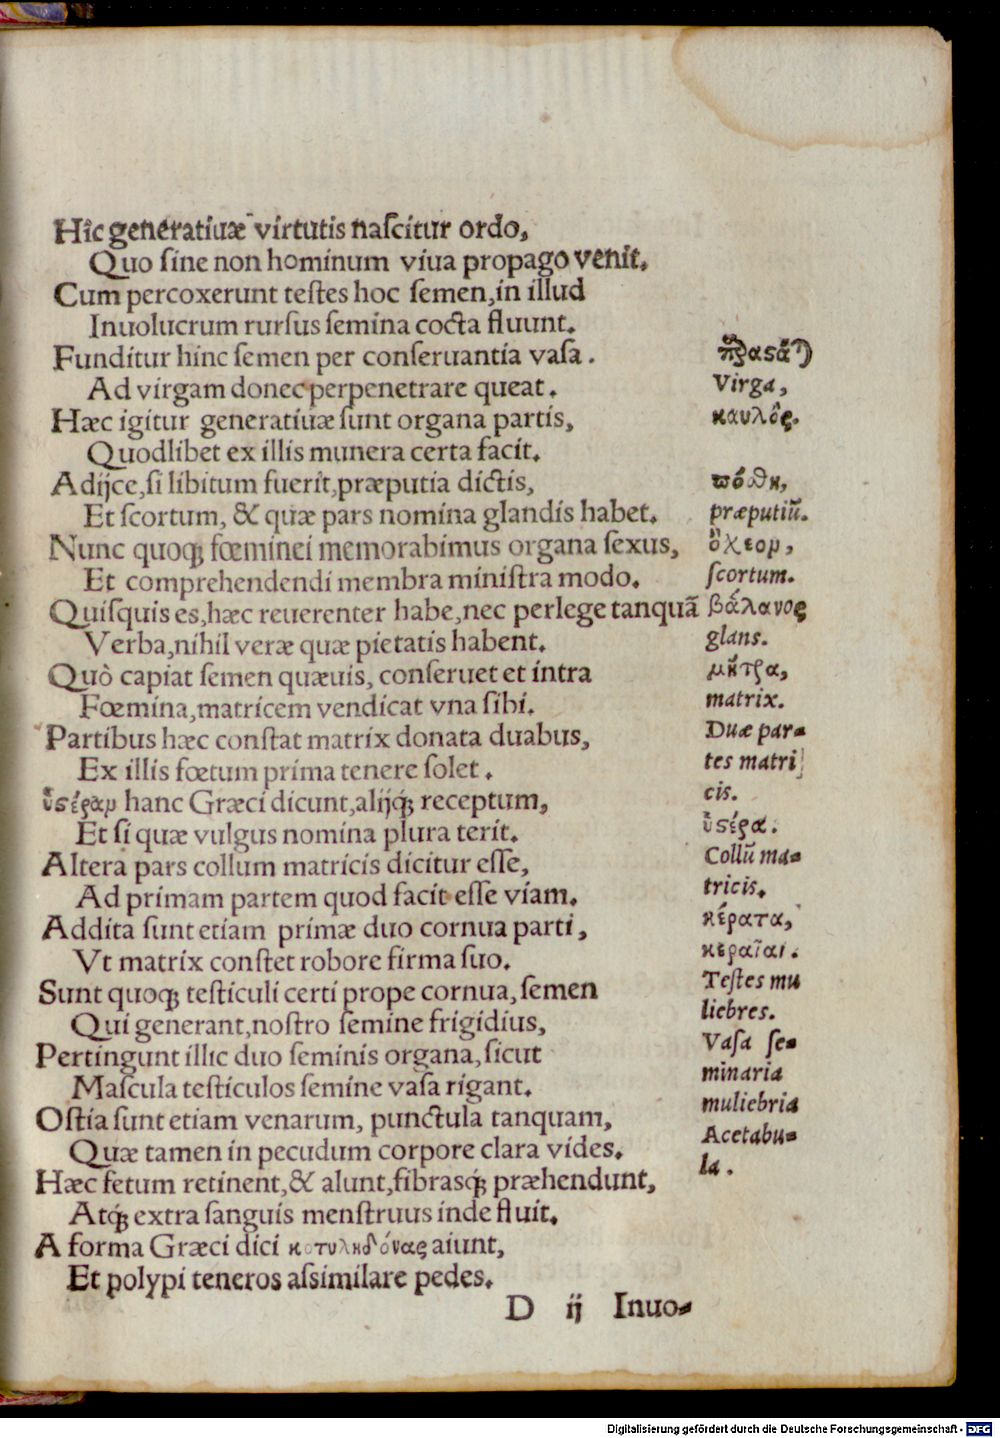 Hîc generatiuæ virtutis nascitur ordo,
Quo sine non hominum viua propago venit.
Cum percoxerunt testes hoc semen,in illud
Inuolucrum rursus semina cocta fluunt.
Funditur hinc semen per conseruantia vasa.
Ad virgam donec perpenetrare queat.
Hæc igitur generatiuæ sunt organa partis,
Quodlibet ex illis munera certa facit.
Adijce,si libitum fuerit,præputia dictis,
Et scortum, & quæ pars nomina glandis habet.
Nunc quoqꝫ fœminei memorabimus organa sexus,
Et comprehendendi membra ministra modo.
Quisquis es,hæc reuerenter habe,nec perlege tanquã
Verba,nihil veræ quæ pietatis habent.
Quò capiat semen quæuis, conseruet et intra
Fœmina,matricem vendicat vna sibi.
Partibus hæc constat matrix donata duabus,
Ex illis fœtum prima tenere solet.
ὑστέραμ hanc Græci dicunt,alijqꝫ receptum,
Et si quæ vulgus nomina plura terit.
Altera pars collum matricis dicitur esse,
Ad primam partem quod facit esse viam.
Addita sunt etiam primæ duo cornua parti,
Vt matrix constet robore firma suo.
Sunt quoqꝫ testiculi certi prope cornua,semen
Qui generant,nostro semine frigidius,
Pertingunt illic duo seminis organa,sicut
Mascula testiculos semine vasa rigant.
Ostia sunt etiam venarum, punctula tanquam,
Quæ tamen in pecudum corpore clara vides.
Hæc fetum retinent,& alunt,fibrasqꝫ præhendunt,
Atqꝫ extra sanguis menstruus inde fluit.
A forma Græci dici κοτυληδόνας aiunt,
Et polypi teneros assimilare pedes.
D ij Inuo-
Virga,
καυλὸς.
πόσθη,
præputiũ.
ὄχεομ,
scortum.
βάλανος
glans.
μήτρα,
matrix.
Duæ par-
tes matri
cis.
ὑστέρα.
Collũ ma-
tricis.
κέρατα,
κεραῖαι.
Testes mu
liebres.
Vasa se-
minaria
muliebria
Acetabu-
la.
Digitalisierung gefördert durch die Deutsche Forschungsgemeinschaft - DFG